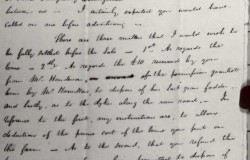 believe so — I certainly expected you would have
called on me before advertising —
There are three matters that I would wish to
be fully settled before the Sale — 1st As regards the
lime — 2nd As regards the £10 received by you
from Mr. Hamilton, of the permission granted
him by Mr. Hamilton, to dispose of his last year fodder —
and lastly, as to the dykes along the new road — In
reference to the first, my instructions are, to allow
deduction of the prime cost of the lime you put on
the farm — As to the second, that you refund the
to dispose of